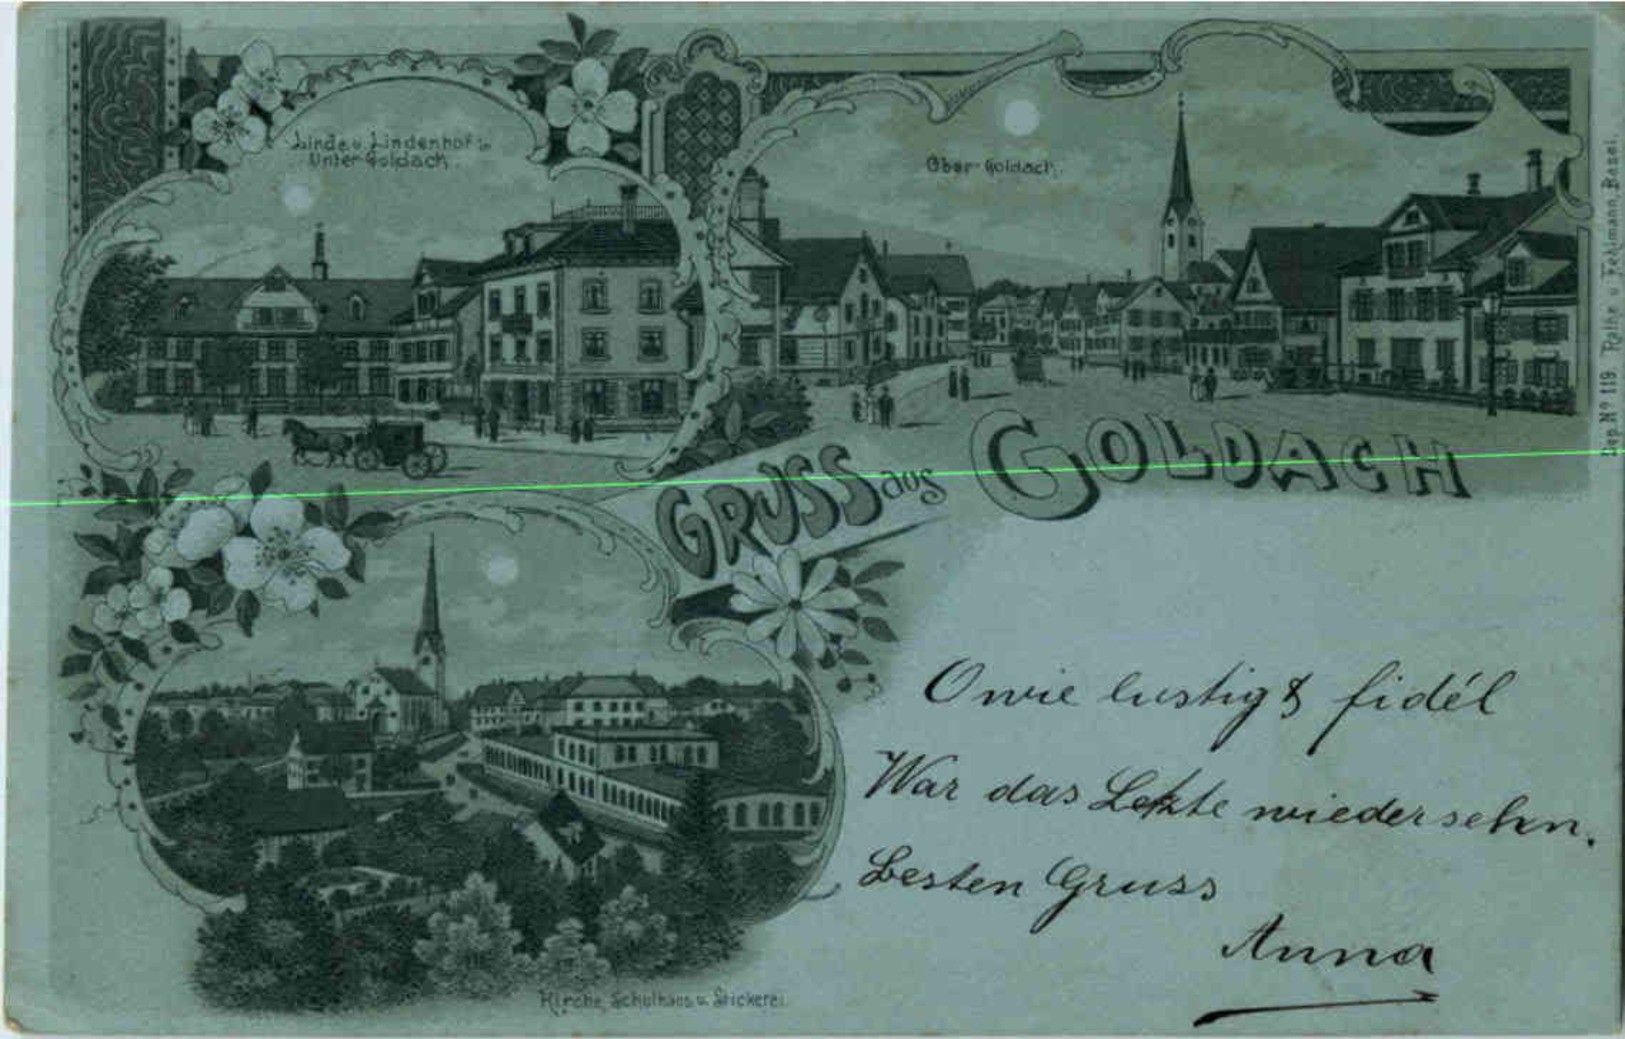 Linde u. Lindenhof in
Unter-Goldach.
Ober-Goldach.
GRUSS aus GOLDACH
O wie lustig & fidél
War das Letzte wiedersehn.
Besten Gruss
Anna
Kirche, Schulhaus u. Stickerei.
Dep. Nº 119. Rathe u. Fehlmann, Basel.